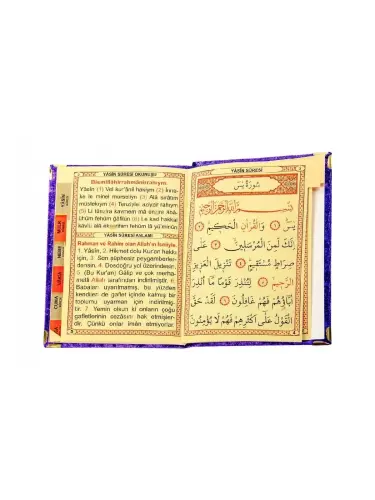 YÂSÎN SÛRESİ OKUNUŞU
Bismillâhirrahmânirrahîym.
Yâsîn (1) Vel kur'ânil hakiym (2) İnne-
ke le minel murseliyn (3) Alâ sirâtım
müstekıym (4) Tenziylel azıyzir rahiym
(5) Li tünzira kavmem mâ ünzira âbâ-
ühüm fehüm ğâfilûn (6) Le kad hakkal
kavlü alâ ekserihim fehüm lâ yü'minûn
YÂSÎN SÛRESİ ANLAMI
Rahman ve Rahîm olan Allah'ın ismiyle.
1. Yâsîn. 2. Hikmet dolu Kur'an hakkı
için, 3. Sen şüphesiz peygamberler-
densin. 4. Dosdoğru yol üzerindesin.
5. (Bu Kur'an) Galip ve çok merha-
metli Allah tarafından indirilmiştir. 6.
Babaları uyarılmamış, bu yüzden
kendileri de gaflet içinde kalmış bir
toplumu uyarman için indirilmiş-
tir. 7. Yemin olsun ki onların çoğu
gafletlerinin cezasını hak etmişler-
dir. Çünkü onlar iman etmiyorlar.
YÂSÎN
MÜLK
NEBE
CUMA
YÂSÎN SÛRESİ
سُورَةُ يٰسٓ
بِسْمِ اللّٰهِ الرَّحْمٰنِ الرَّحِيمِ
يٰسٓ ﴿١﴾ وَالْقُرْاٰنِ الْحَكِيمِ ﴿٢﴾
اِنَّكَ لَمِنَ الْمُرْسَلِينَ ﴿٣﴾ عَلٰى
صِرَاطٍ مُسْتَقِيمٍ ﴿٤﴾ تَنْزِيلَ الْعَزِيزِ
الرَّحِيمِ ﴿٥﴾ لِتُنْذِرَ قَوْمًا مَٓا اُنْذِرَ
اٰبَٓاؤُ۬هُمْ فَهُمْ غَافِلُونَ ﴿٦﴾ لَقَدْ حَقَّ
الْقَوْلُ عَلٰٓى اَكْثَرِهِمْ فَهُمْ لَا يُؤْمِنُونَ